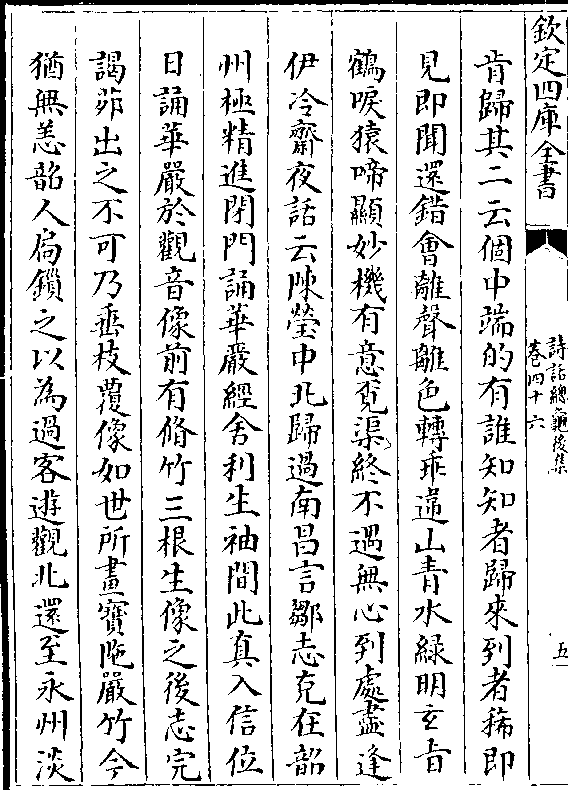 欽定四庫全書
詩話總龜後集
卷四十六
五
肯歸其二云個中端的有誰知知者歸來到者稀即
見即聞還錯會離聲離色轉乖違山青水綠明玄旨
鶴唳猿啼顯妙機有意覓渠終不遇無心到處盡逢
伊冷齋夜話云陳瑩中北歸過南昌言鄒志完在韶
州極精進閉門誦華嚴經舍利生袖間此真入信位
日誦華嚴於觀音像前有脩竹三根生像之後志完
謁茆出之不可乃垂枝覆像如世所畫寶陁巖竹今
猶無恙韶人扄鎖之以為過客遊觀北還至永州淡